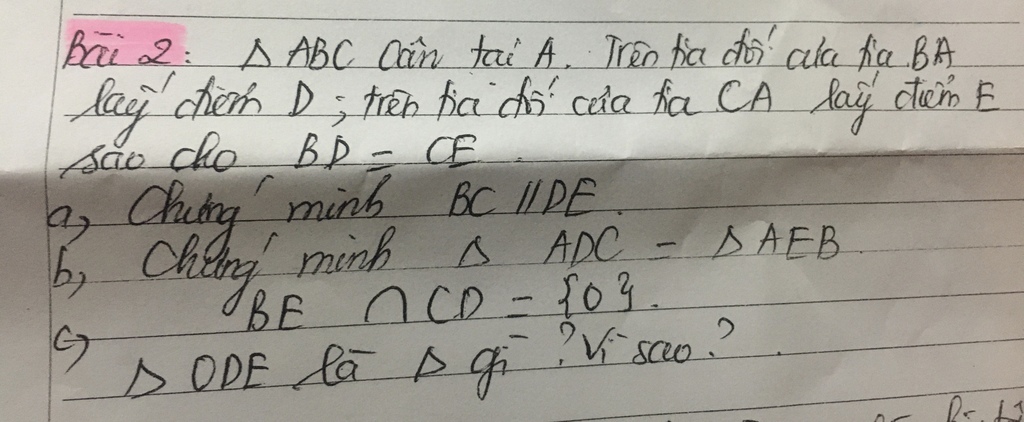 Bài 2: Δ ABC Cân tại A. Trên tia đối của tia BA
lấy điểm D; trên tia đối của tia CA lấy điểm E
sao cho BD = CE.
a, Chứng minh BC // DE.
b, Chứng minh Δ ADC = Δ AEB
BE ∩ CD = {O}.
c, Δ ODE là Δ gì? Vì sao?